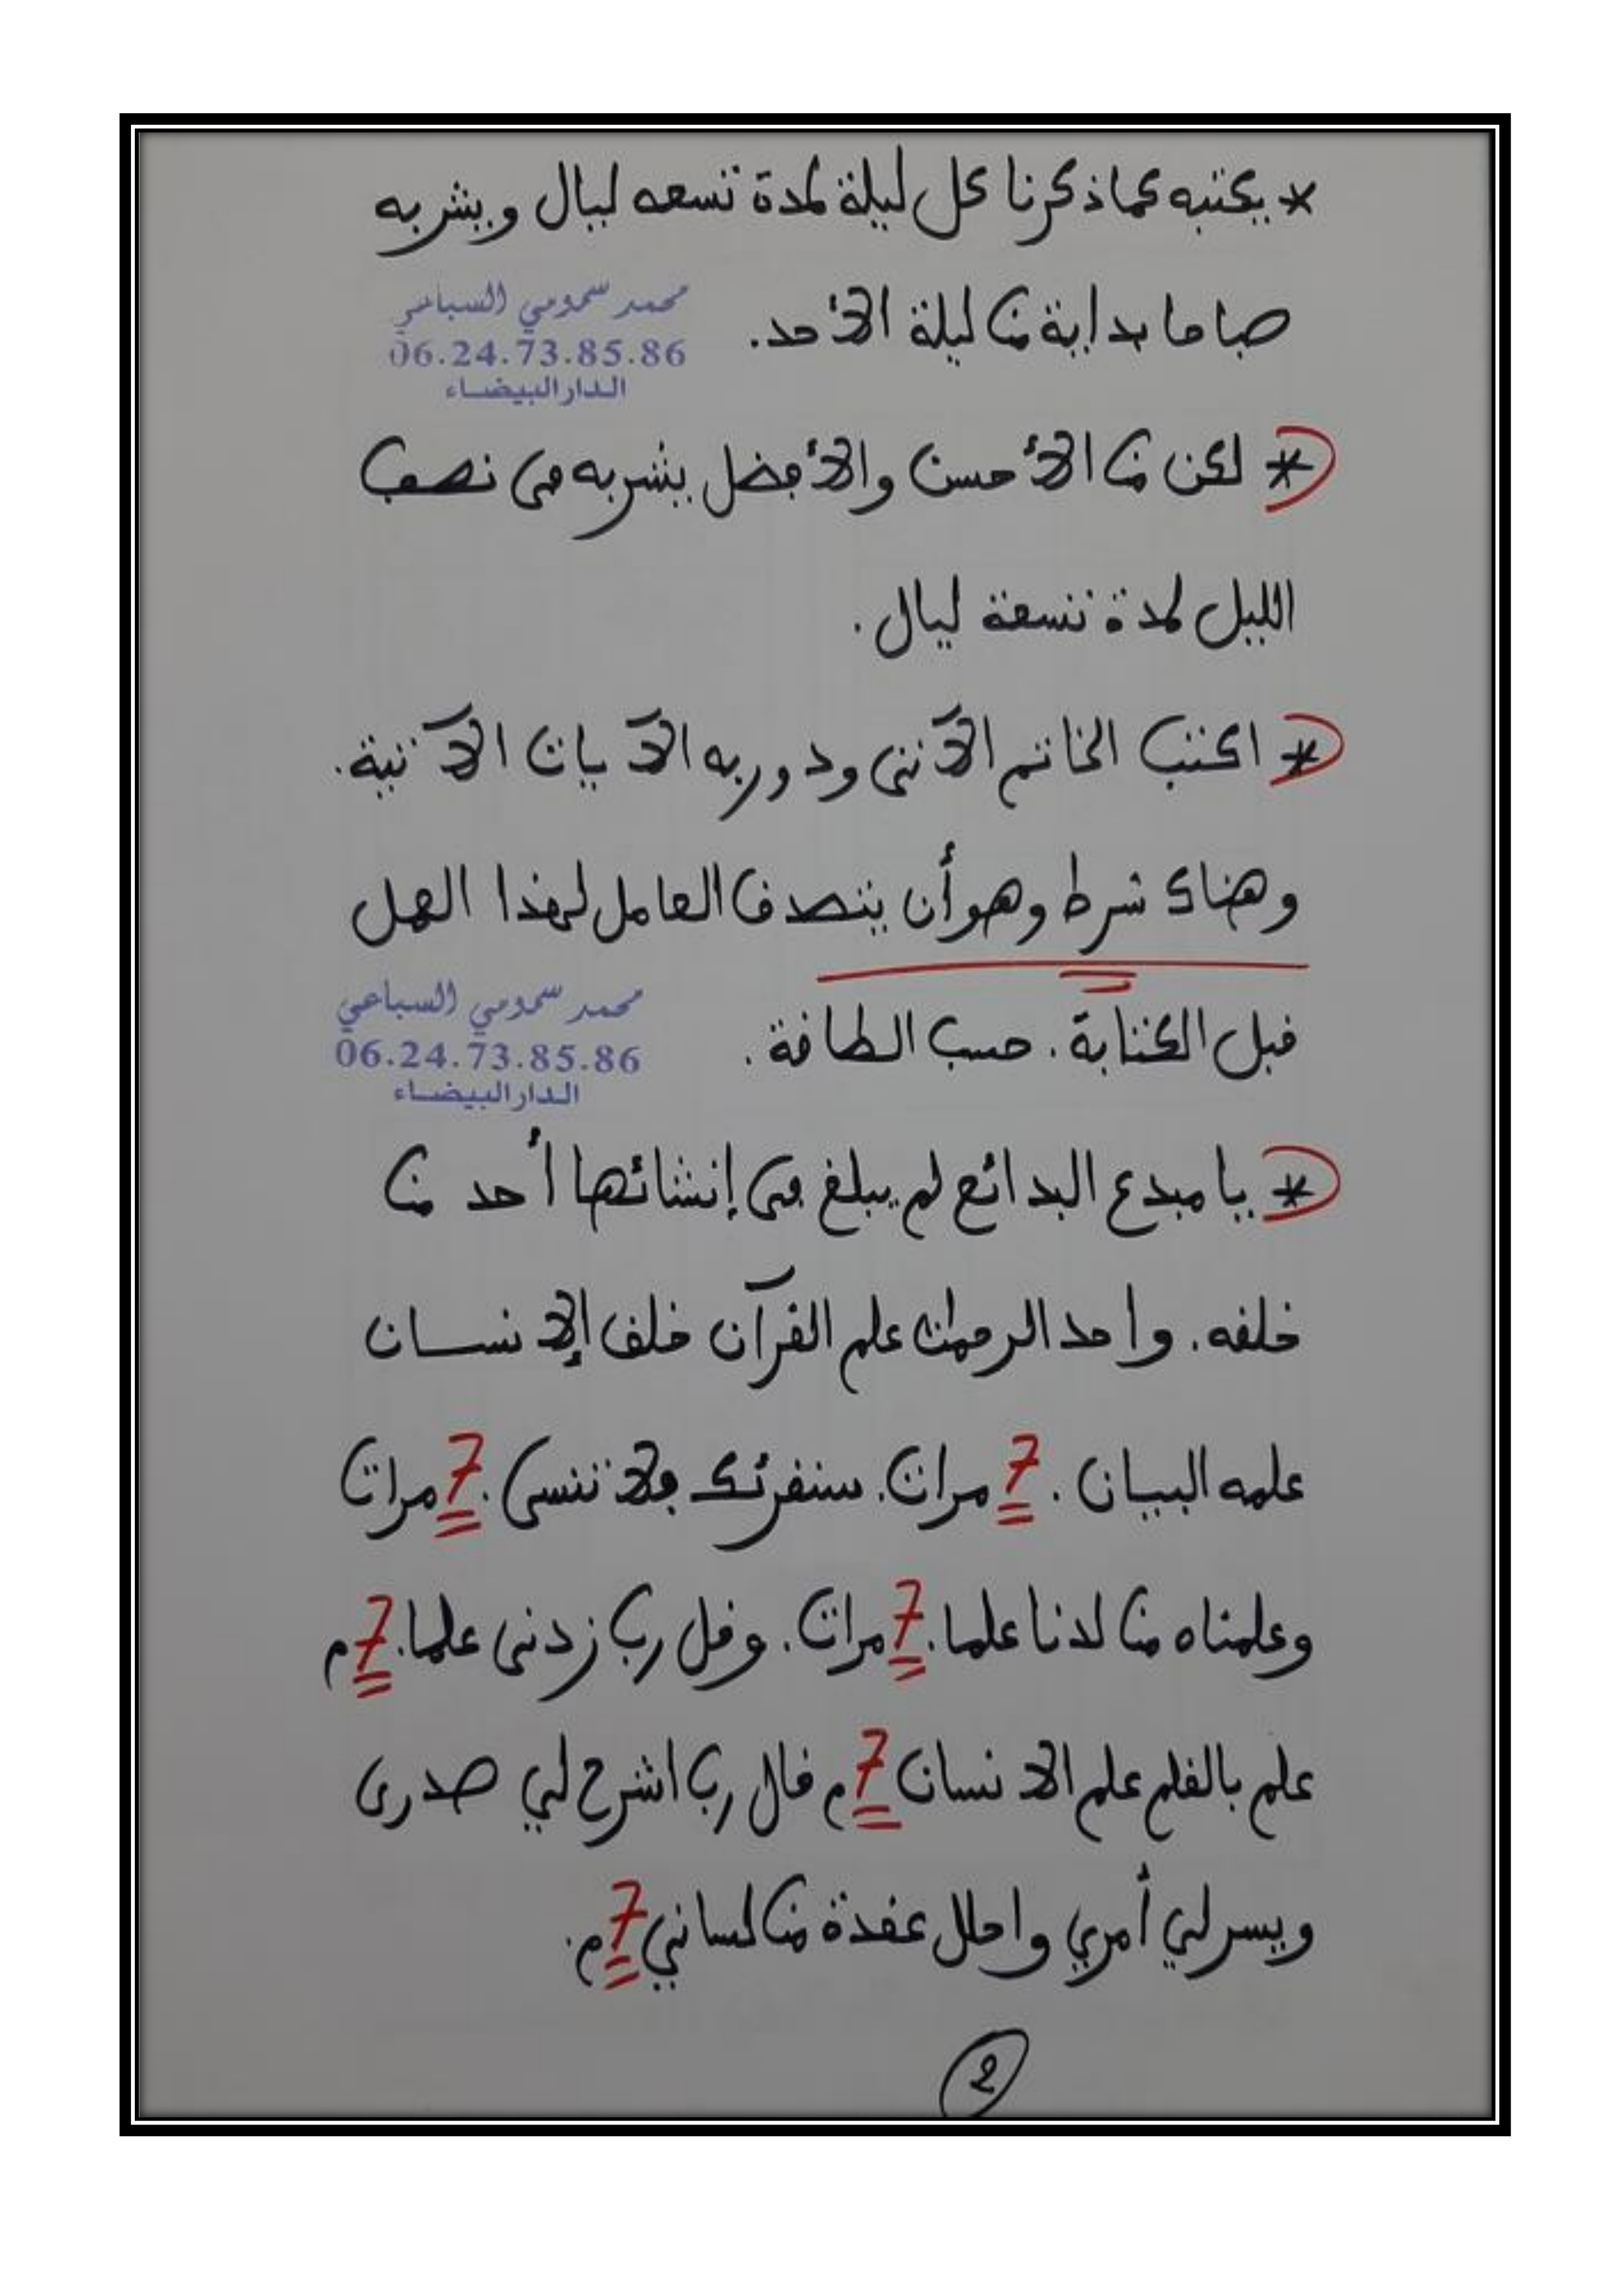 * يكتبه كما ذكرنا كل ليلة لمدة تسعه ليال ويشربه
صباحا بداية من ليلة الأحد.
محمد سمومي السباعي
06.24.73.85.86
الدار البيضاء
* لكن من الأحسن والأفضل يشربه في نصف
الليل لمدة تسعة ليال.
* اكتب الخاتم الآتي ودور به الآيات الآتية.
وهناك شرط وهو أن يتصدق العامل لهذا العمل
قبل الكتابة. حسب الطاقة.
محمد سمومي السباعي
06.24.73.85.86
الدار البيضاء
* يا مبدع البدائع لم يبلغ في إنشائها أحد من
خلقه. واحد الرحمان علم القرآن خلق الإنسان
علمه البيان. 7 مرات. سنقرئك فلا تنسى. 7 مرات
وعلمناه من لدنا علما. 7 مرات. وقل رب زدني علما. 7 م
علم بالقلم علم الانسان 7 م قال رب اشرح لي صدري
ويسر لي أمري واحلل عقدة من لساني 7 م.
2